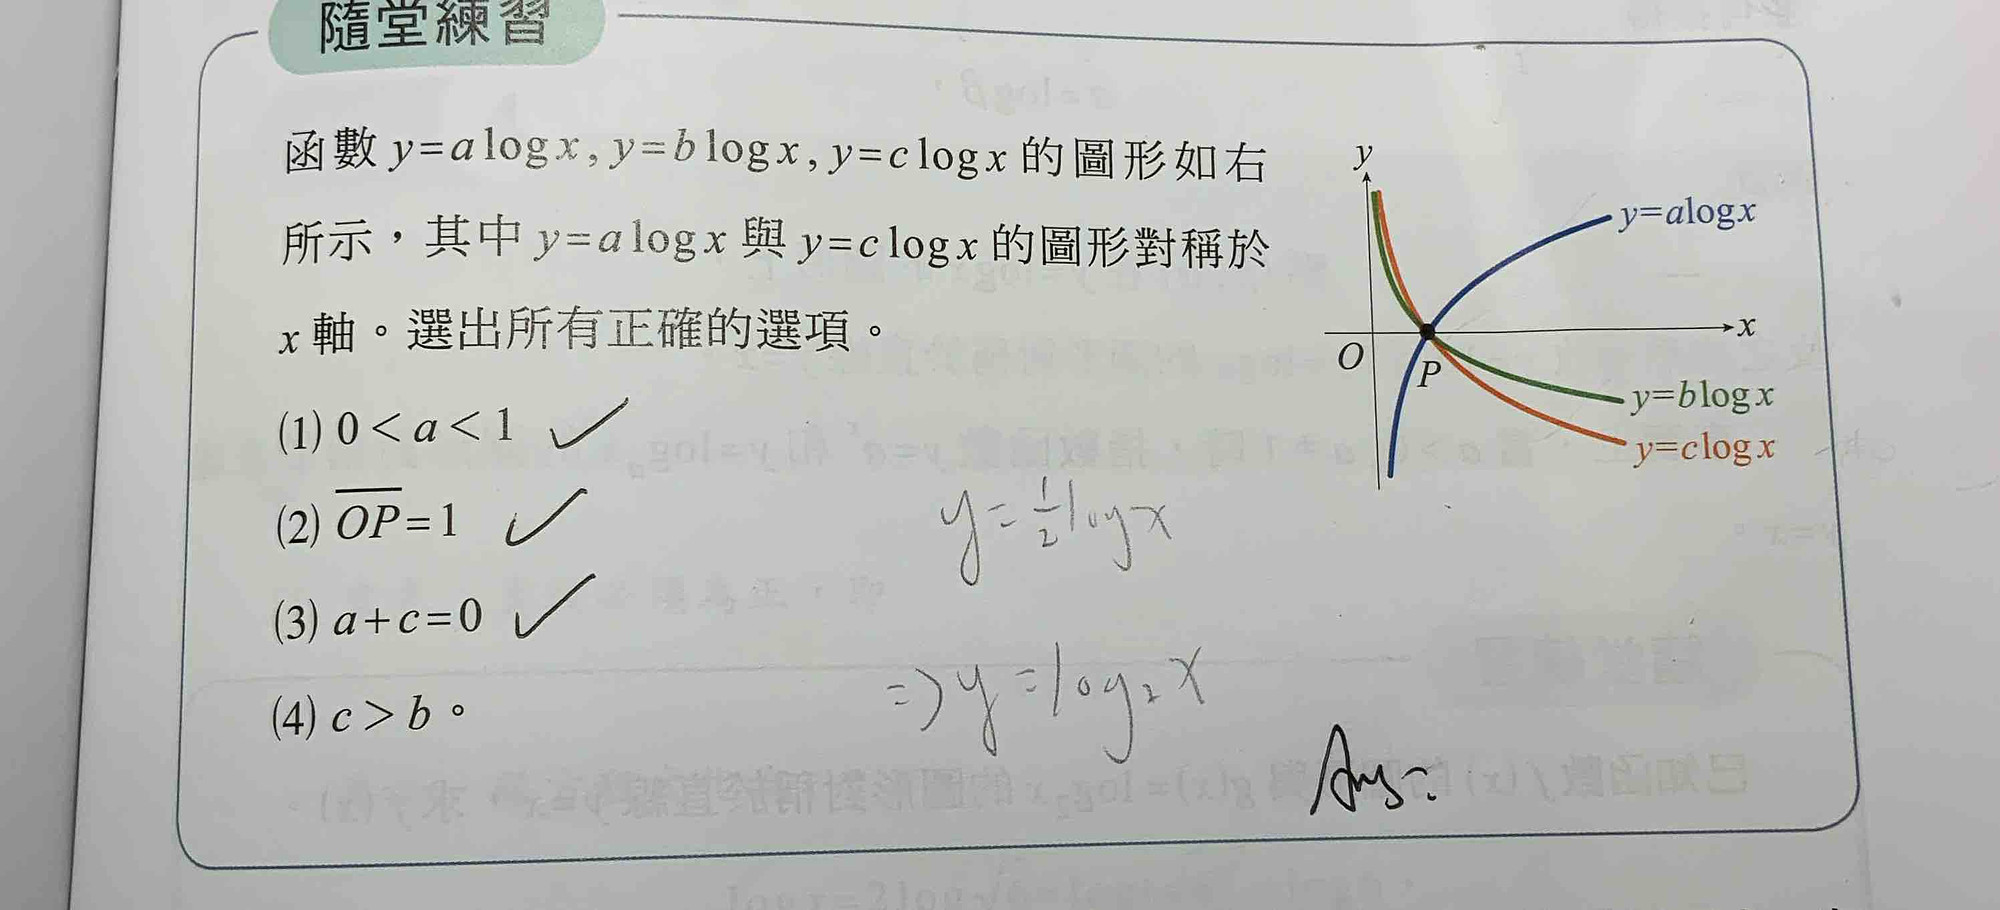 隨堂練習
函數 y=a log x, y=b log x, y=c log x 的圖形如右
所示，其中 y=a log x 與 y=c log x 的圖形對稱於
x 軸。選出所有正確的選項。
(1) 0<a<1 ✓
(2) \overline{OP}=1 ✓
(3) a+c=0 ✓
(4) c>b。
y
y=alogx
x
O
P
y=blogx
y=clogx
y=\frac{1}{2}logx
⇒y=log₂x
Ans: